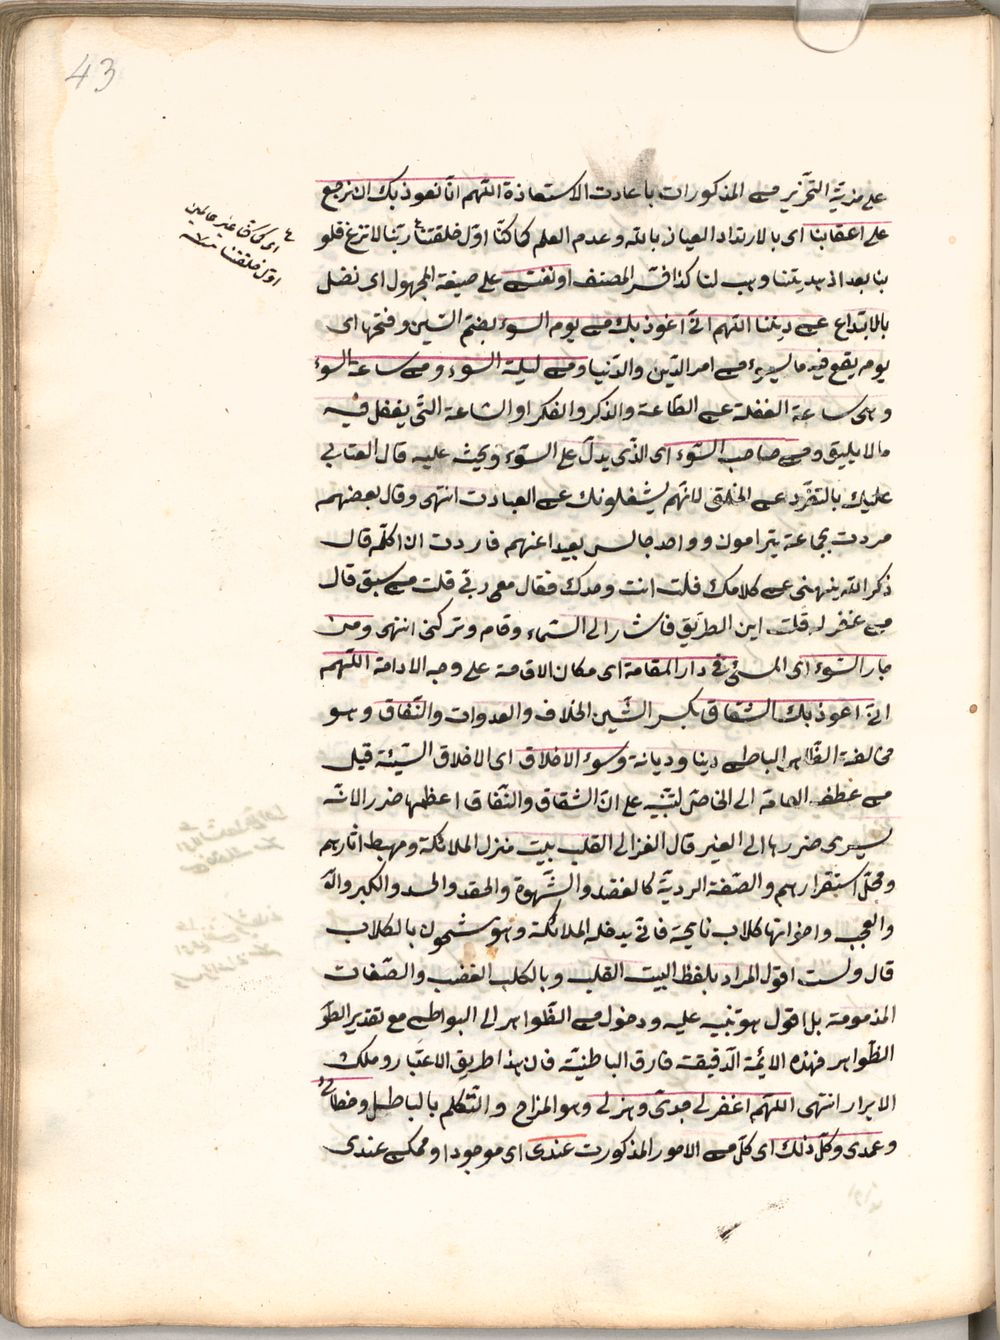 43
على مزية التحرز من المذكورات باعادت الاستعاذة اللهم انا نعوذ بك ان نرجع
على اعقابنا اى بالارتداد العياذ بالله وعدم العلم كما كنا اول خلقتنا ربنا لا تزغ قلو
بنا بعد اذ هديتنا وهب لنا كذا فسر المصنف او نفتن على صيغة المجهول اى نضل
بالابتداع عن ديننا اللهم انى اعوذ بك من يوم السوء بضم السين وفتحها اى
يوم يقع فيه ما يسوء من امر الدين والدنيا ومن ليلة السوء ومن ساعة السوء
وهى ساعة الغفلة عن الطاعة والذكر والفكر او الساعة التى يغفل فيه
ما لا يليق ومن صاحب السوء اى الذى يدل على السوء ويحث عليه قال العتابي
عليك بالتفرد عن الخلق لانهم يشغلونك عن العبادت انتهى وقال بعضهم
مررت بجماعة يترامون وواحد جالس بعيدا عنهم فاردت ان اكلمه قال
ذكر الله ينهنى عن كلامك قلت انت وحدك فقال معى ربى قلت من سبق قال
من غفر له قلت اين الطريق فاشار الى السماء وقام وتركنى انتهى ومن
جار السوء اى المسئ فى دار المقامة اى مكان الاقامة على وجه الادامة اللهم
انى اعوذ بك الشقاق بكسر الشين الخلاف والعدوات والنفاق وهو
مخالفة الظاهر الباطن دينا وديانة وسوء الاخلاق اى الاخلاق السيئة قيل
من عطف العامة الى الخاص لتنبيه على ان الشقاق والنفاق اعظمها ضررا لانه
يسرى ضررها الى الغير قال الغزالى القلب بيت منزل الملائكة ومهبط اثارهم
ومحل استقرارهم والصفة الردية كالغضب والشهوة والحقد والحسد والكبر
والعجب واخواتها كلاب نابحة فانى يدخله الملائكة وهو مشحون بالكلاب
قال ولست اقول المراد بلفظ البيت القلب وبالكلب الغضب والصفات
المذمومة بل اقول هو تنبيه عليه ودخول من الظواهر الى البواطن مع تقدير الظو
الظواهر فهذه الدقيقة فارق الباطنية فان هذا طريق الاعتبار وملك
الابرار انتهى اللهم اغفر لى جدى وهزلى وهو المزاح والتكلم بالباطل وخطائى
وعمدى وكل ذلك اى كل من الامور المذكورت عندى اى موجودا وممكن عندى
اى كما كنا غير عالمين
اول خلقتنا